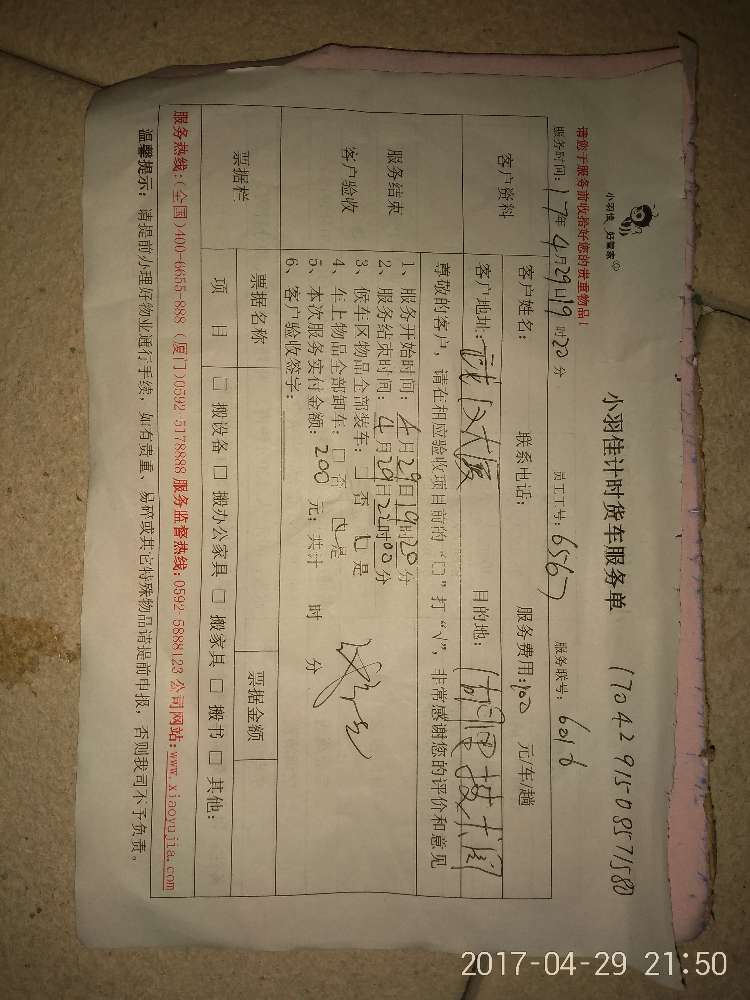 小羽佳 好管家
小羽佳计时货车服务单 1704291508571580
请您于服务前收拾好您的贵重物品！
服务时间：17年4月29日19时20分 员工工号：6567 服务联号：6016
客户资料
客户姓名： 联系电话： 服务费用：200 元/车/趟
客户地址： 大厦 目的地：
服务结束
客户验收
尊敬的客户，请在相应验收项目前的“□”打“√”，非常感谢您的评价和意见
1、服务开始时间：4月29日19时20分
2、服务结束时间：4月29日22时00分
3、候车区物品全部装车：□否 ☑是
4、车上物品全部卸车：□否 ☑是
5、本次服务实付金额：200 元；共计 时 分
6、客户验收签字：
票据栏
票据名称 票据金额
项 目 □搬设备 □搬办公家具 □搬家具 □搬书 □其他：
服务热线:(全国)400-6655-888 (厦门)0592-5178888 服务监督热线:0592-5888123 公司网站:www.xiaoyujia.com
温馨提示：请提前办理好物业通行手续，如有贵重、易碎或其它特殊物品请提前申报，否则我司不予负责。
2017-04-29 21:50